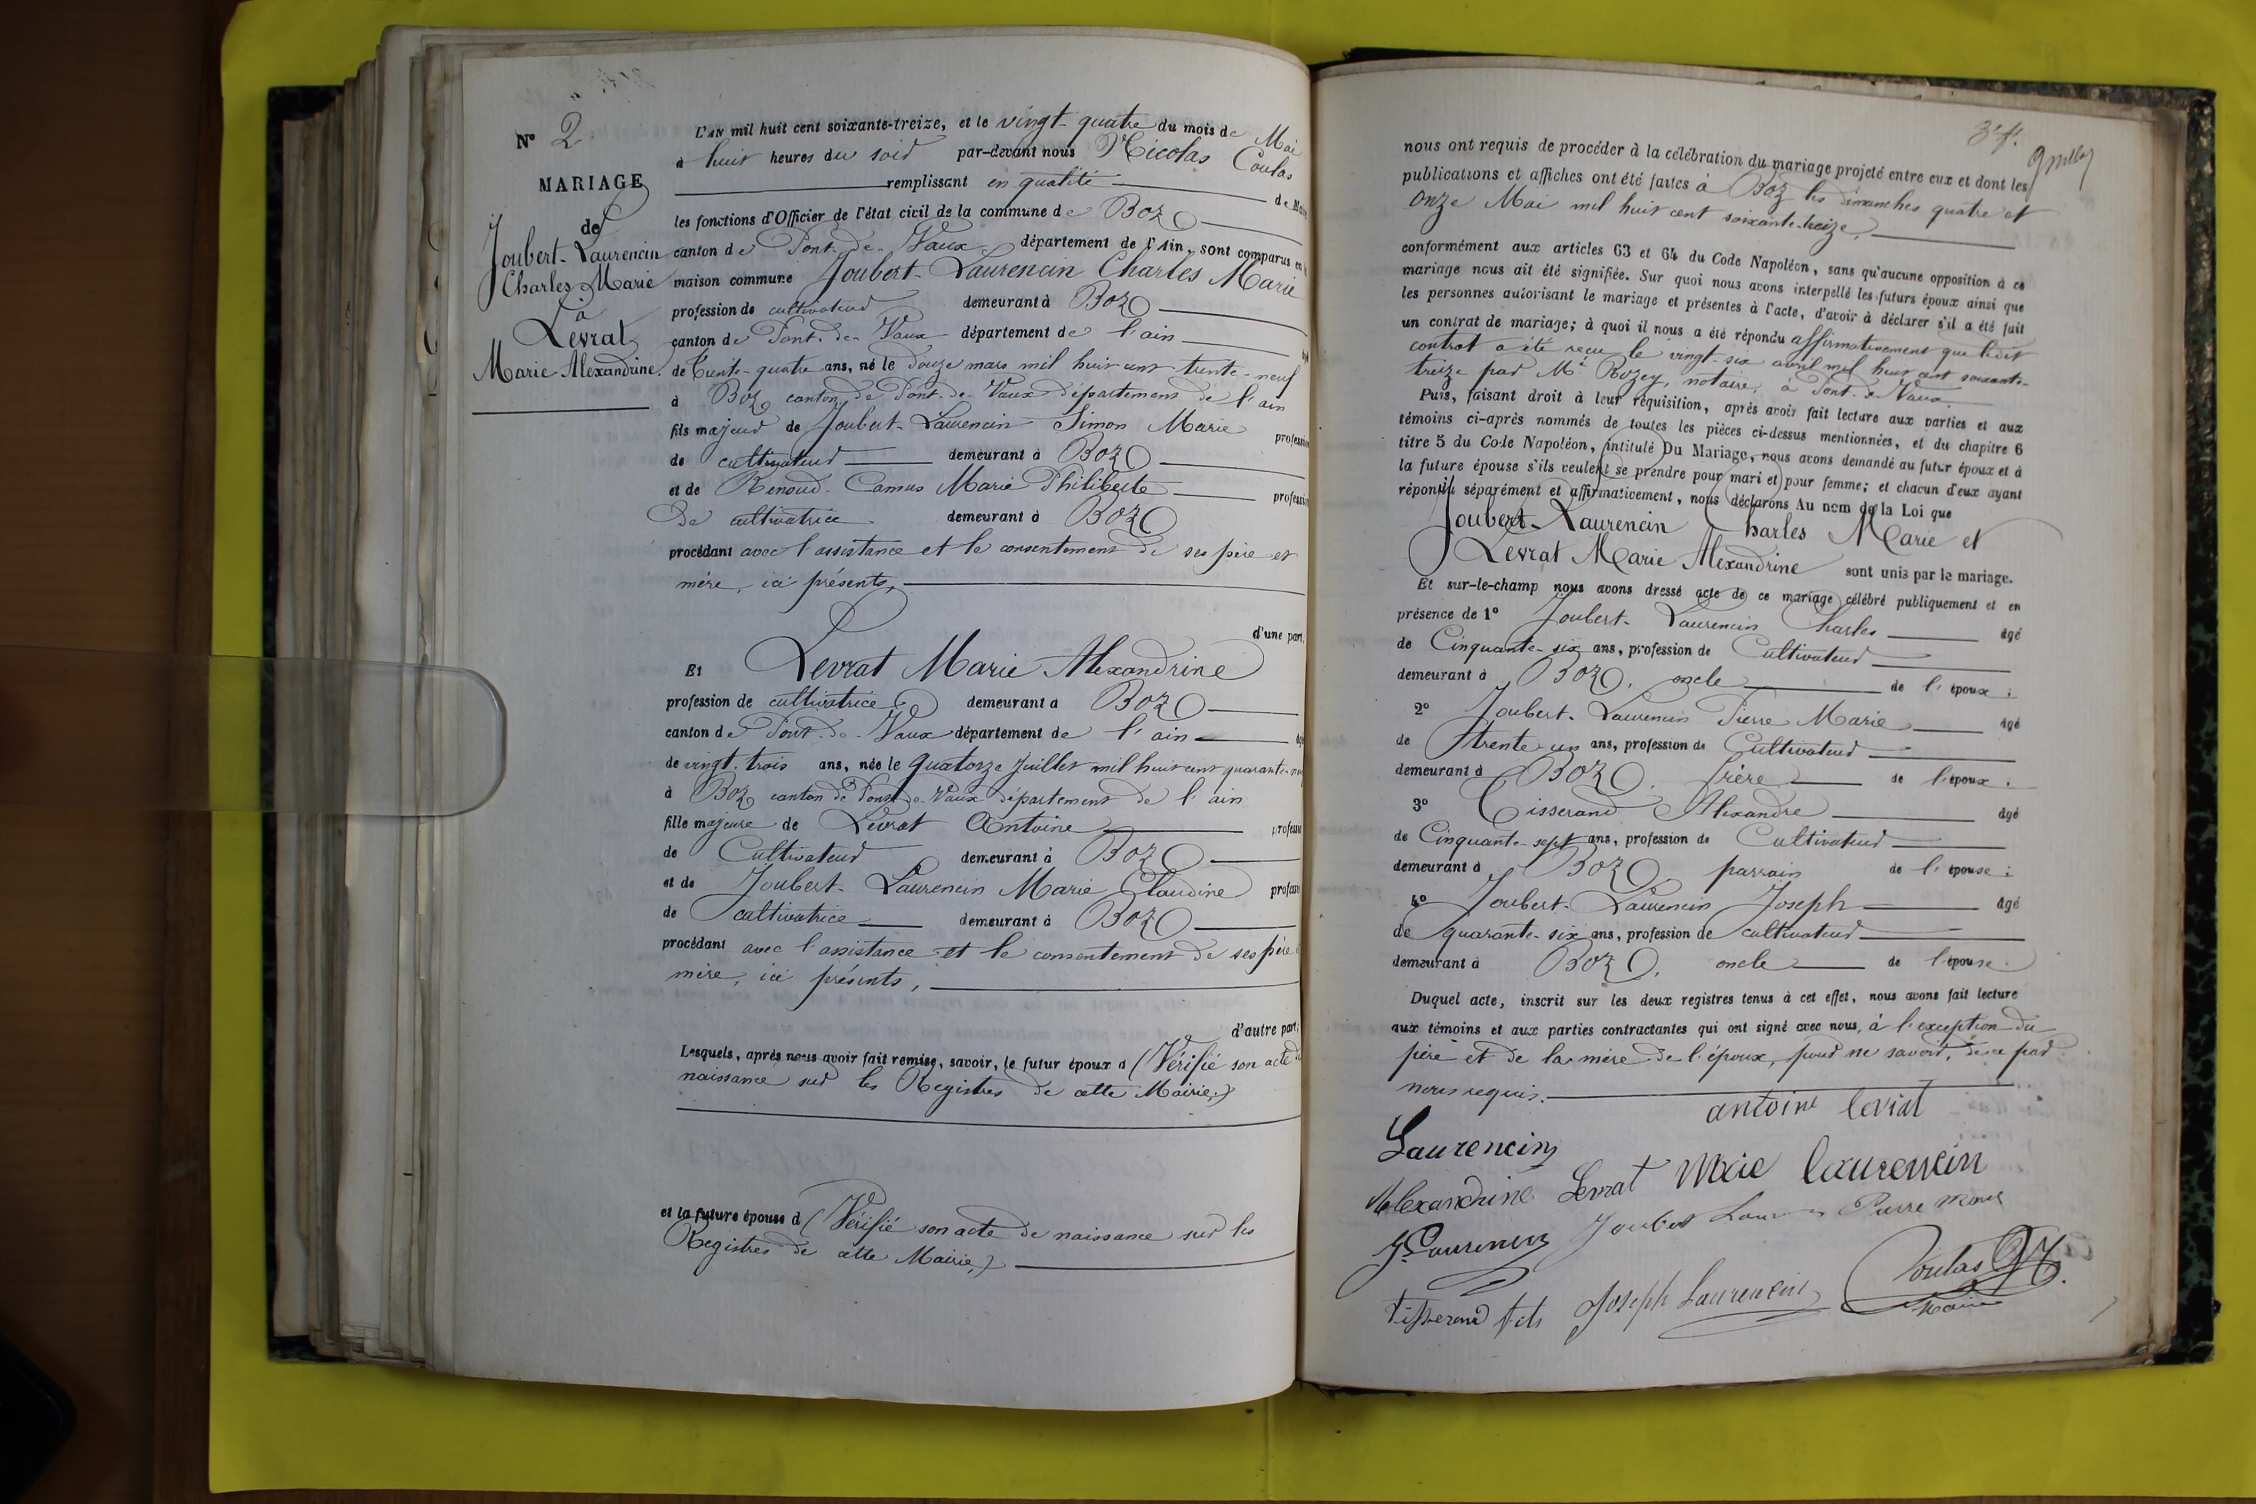 N° 2
MARIAGE
de
Joubert-Laurencin
Charles Marie
à
Levrat
Marie Alexandrine.
L'AN mil huit cent soixante-treize, et le vingt-quatre du mois de Mai
à huit heures du soir par-devant nous Nicolas Coulas
remplissant en qualité de Maire
les fonctions d'Officier de l'état civil de la commune de Boz
canton de Pont-de-Vaux, département de l'Ain, sont comparus en la
maison commune Joubert-Laurencin Charles Marie
profession de cultivateur demeurant à Boz
canton de Pont-de-Vaux département de l'ain âgé
de trente-quatre ans, né le Douze mars mil huit cent trente-neuf
à Boz canton de Pont-de-Vaux département de l'ain
fils majeur de Joubert-Laurencin Simon Marie profession
de cultivateur demeurant à Boz
et de Renoud-Camus Marie Philiberte profession
de cultivatrice demeurant à Boz
procédant avec l'assistance et le consentement de ses père et
mère, ici présents,
d'une part,
Et Levrat Marie Alexandrine
profession de cultivatrice demeurant à Boz
canton de Pont-de-Vaux département de l'ain âgé
de vingt-trois ans, née le quatorze Juillet mil huit cent quarante-neuf
à Boz canton de Pont-de-Vaux département de l'ain
fille majeure de Levrat Antoine profession
de Cultivateur demeurant à Boz
et de Joubert-Laurencin Marie Claudine profession
de cultivatrice demeurant à Boz
procédant avec l'assistance et le consentement de ses père
mère, ici présents,
d'autre part;
Lesquels, après nous avoir fait remise, savoir, le futur époux d (Vérifié son acte de
naissance sur les Registres de cette Mairie.)
et la future épouse d (Vérifié son acte de naissance sur les
Registres de cette Mairie,)
3e f.
nous ont requis de procéder à la célébration du mariage projeté entre eux et dont les
publications et affiches ont été faites à Boz les dimanches quatre et
onze Mai mil huit cent soixante-treize,
conformément aux articles 63 et 64 du Code Napoléon, sans qu'aucune opposition à ce
mariage nous ait été signifiée. Sur quoi nous avons interpellé les futurs époux ainsi que
les personnes autorisant le mariage et présentes à l'acte, d'avoir à déclarer s'il a été fait
un contrat de mariage; à quoi il nous a été répondu affirmativement que ledit
contrat a été reçu le vingt-six avril mil huit cent soixante-
treize par Me Rozey, notaire, à Pont-de-Vaux.
Puis, faisant droit à leur réquisition, après avoir fait lecture aux parties et aux
témoins ci-après nommés de toutes les pièces ci-dessus mentionnées, et du chapitre 6
titre 5 du Code Napoléon, intitulé Du Mariage, nous avons demandé au futur époux et à
la future épouse s'ils veulent se prendre pour mari et pour femme; et chacun d'eux ayant
répondu séparément et affirmativement, nous déclarons Au nom de la Loi que
Joubert-Laurencin Charles Marie et
Levrat Marie Alexandrine sont unis par le mariage.
Et sur-le-champ nous avons dressé acte de ce mariage célébré publiquement et en
présence de 1° Joubert-Laurencin Charles âgé
de Cinquante-six ans, profession de Cultivateur
demeurant à Boz, oncle de l'époux;
2° Joubert-Laurencin Pierre Marie âgé
de trente un ans, profession de Cultivateur
demeurant à Boz, frère de l'époux;
3° Tisserand Alexandre âgé
de Cinquante-sept ans, profession de Cultivateur
demeurant à Boz, parrain de l'épouse;
4° Joubert-Laurencin Joseph âgé
de quarante-six ans, profession de cultivateur
demeurant à Boz, oncle de l'épouse.
Duquel acte, inscrit sur les deux registres tenus à cet effet, nous avons fait lecture
aux témoins et aux parties contractantes qui ont signé avec nous, à l'exception du
père et de la mère de l'époux, pour ne savoir, de ce par
nous requis.
antoine levrat
Laurencin
Alexandrine Levrat Marie laurencin
Joubert Pierre Marie
J Laurencin
tisserand Joseph Laurencin Coulas
Maire